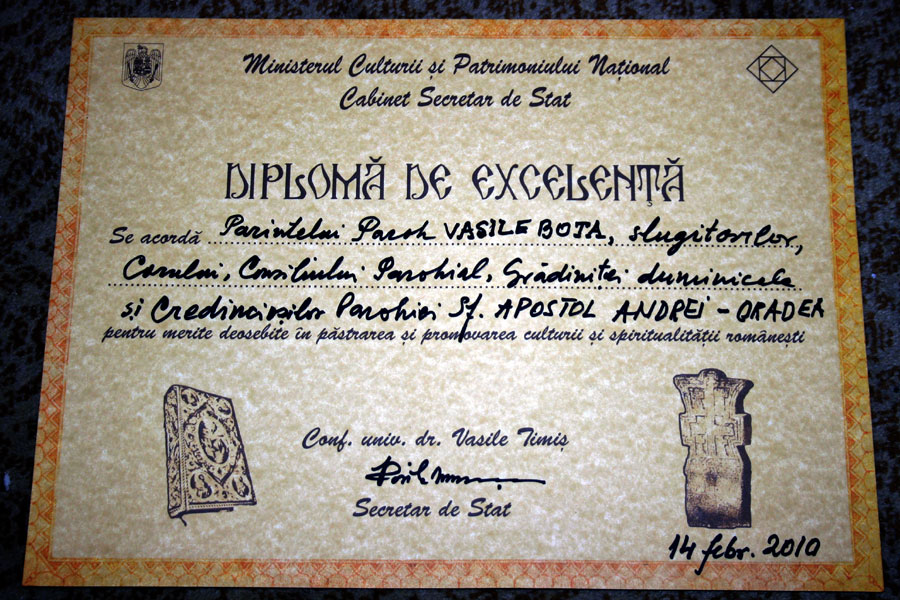 Ministerul Culturii și Patrimoniului Național
Cabinet Secretar de Stat
DIPLOMĂ DE EXCELENŢĂ
Se acordă Parintelui Paroh VASILE BOTA, slugitorilor,
Corului, Consiliului Parohial, Grădiniței duminicale
și Credincioșilor Parohiei Sf. APOSTOL ANDREI - ORADEA
pentru merite deosebite în păstrarea și promovarea culturii și spiritualității românești
Conf. univ. dr. Vasile Timiș
Secretar de Stat
14 febr. 2010